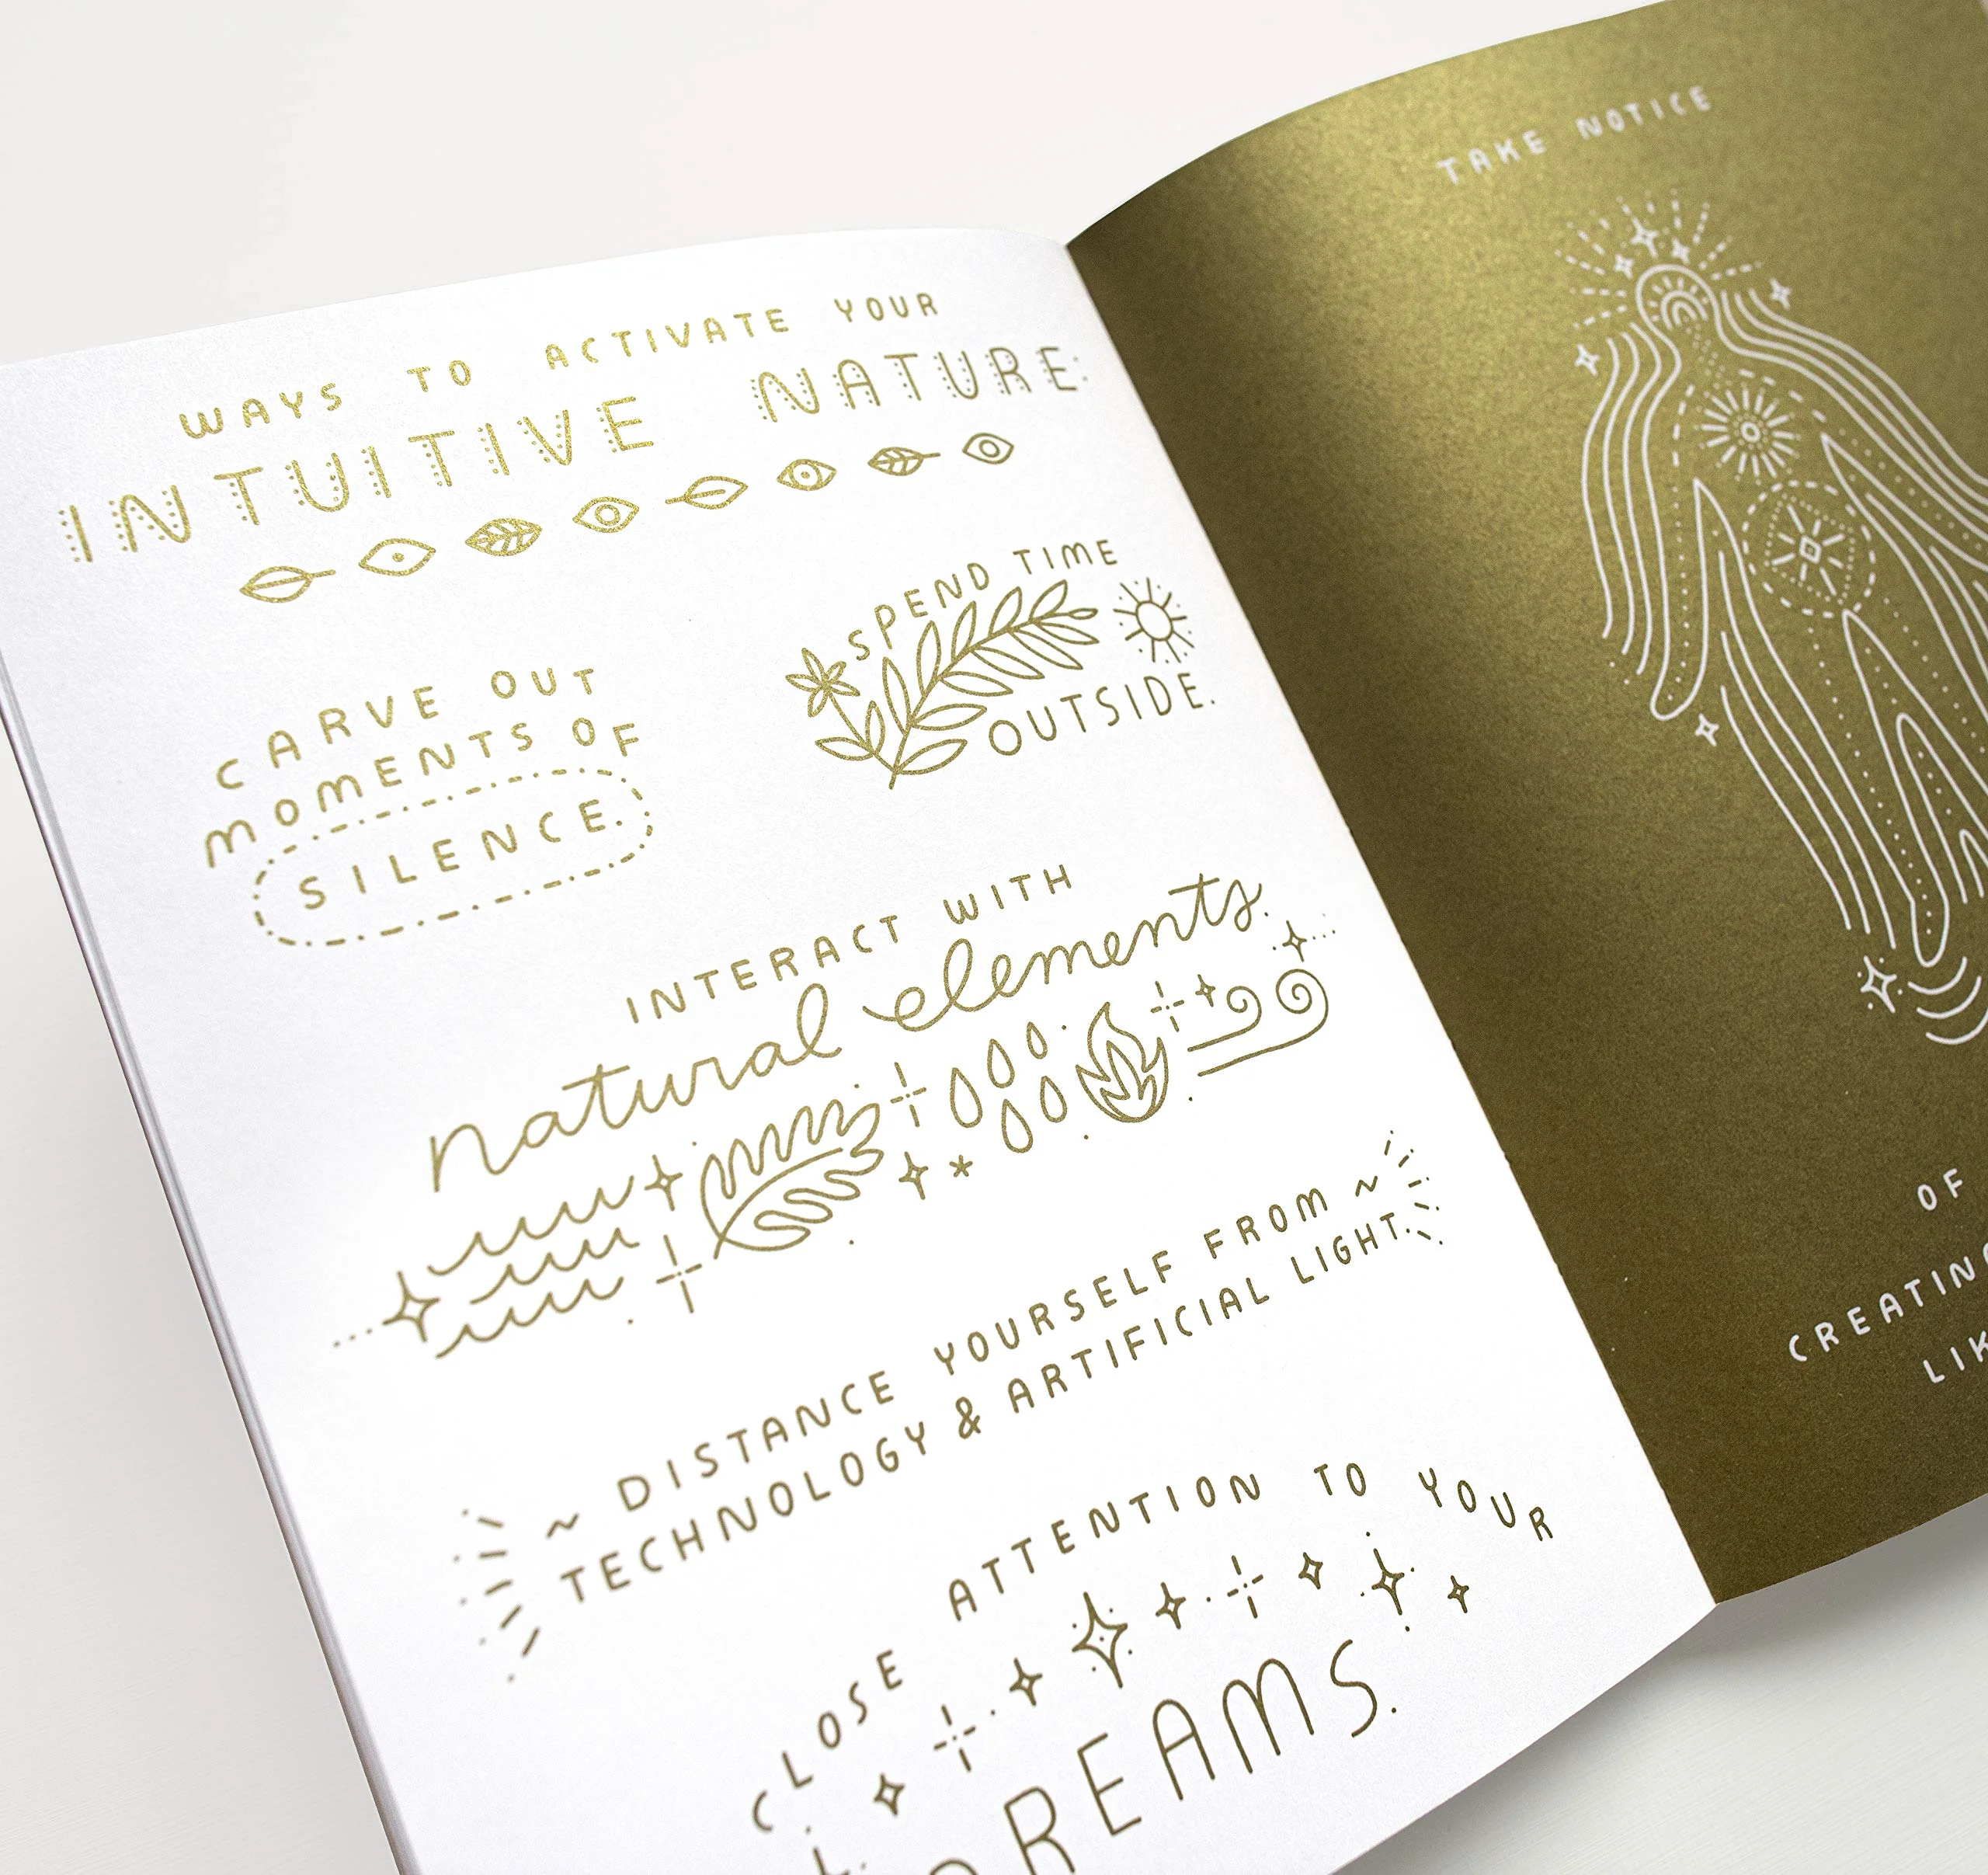 WAYS TO ACTIVATE YOUR
INTUITIVE NATURE:
CARVE OUT
MOMENTS OF
SILENCE.
SPEND TIME
OUTSIDE.
INTERACT WITH
natural elements.
~ DISTANCE YOURSELF FROM ~
TECHNOLOGY & ARTIFICIAL LIGHT.
CLOSE ATTENTION TO YOUR
DREAMS.
TAKE NOTICE
OF